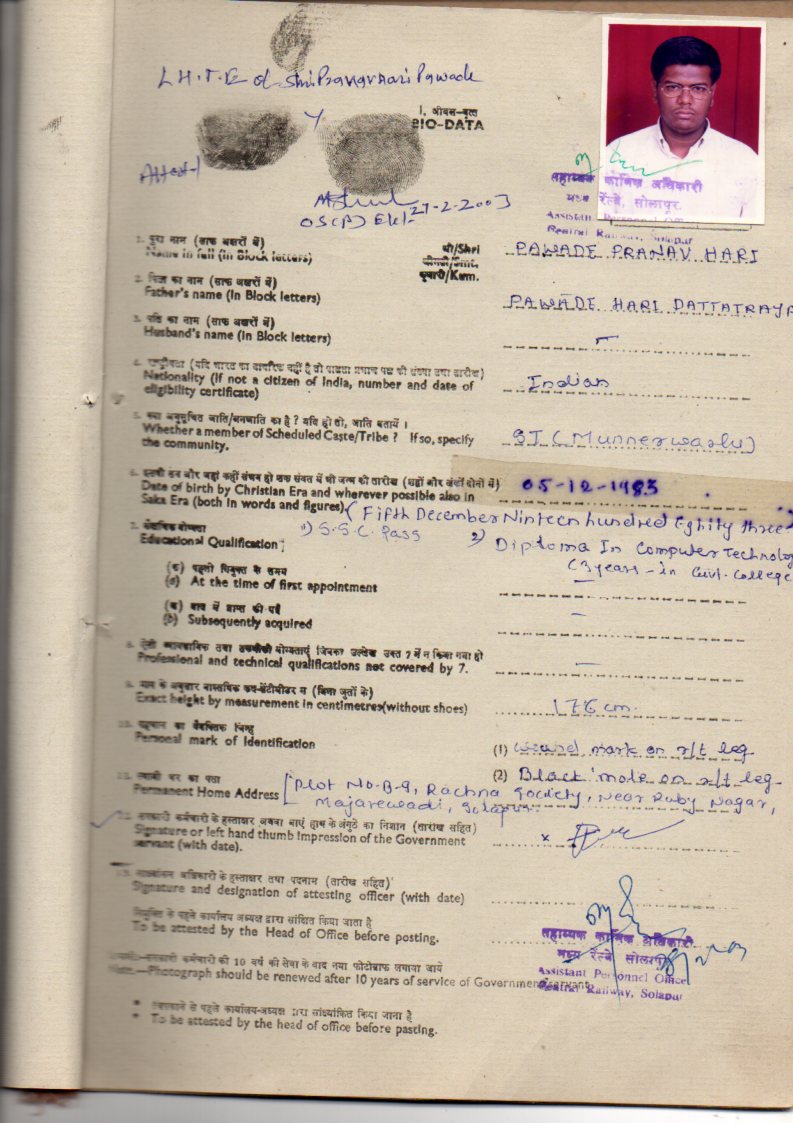 L.H.T.E of Shri Pranav Hari Pawade
1. जीवन-वृत्त
BIO-DATA
27-2-2003
सहाय्यक कार्मिक अधिकारी
मध्य रेल्वे, सोलापूर.
Assistant Personnel Offi
Central Railway, Solapur
1. पुरा नाम (साफ अक्षरों में)
Name in full (in Block letters)
श्री/Shri
श्रीमती/Smt.
कुमारी/Kum.
PAWADE PRANAV HARI
2. पिता का नाम (साफ अक्षरों में)
Father's name (In Block letters)
PAWADE HARI DATTATRAYA
3. पति का नाम (साफ अक्षरों में)
Husband's name (In Block letters)
Nationality (If not a citizen of India, number and date of
eligibility certificate)
Indian
5. क्या अनुसूचित जाति/जनजाति का है? यदि हो तो, जाति बतायें ।
Whether a member of Scheduled Caste/Tribe? If so, specify
the community.
ST (Munnerwarlu)
Date of birth by Christian Era and wherever possible also in
Saka Era (both in words and figures)
05-12-1983
(Fifth December Ninteen hundred Eghity three
7. शैक्षणिक योग्यता
Educational Qualification;
1) S.S.C. Pass
2) Diploma In Computer Technology
(3 years - in Govt. College
(क) पहली नियुक्ति के समय
(a) At the time of first appointment
(ख) बाद में प्राप्त की गई
(b) Subsequently acquired
Professional and technical qualifications not covered by 7.
Exact height by measurement in centimetres(without shoes)
176 cm.
10. पहचान का वैयक्तिक चिन्ह
Personal mark of Identification
(1) wound mark on r/t leg
(2) Black mole on r/t leg
11. स्थायी घर का पता
Permanent Home Address
Plot No-B-9, Rachna Society, Near Ruby Nagar,
Majarewadi, Solapur.
12. सरकारी कर्मचारी के हस्ताक्षर अथवा बाएं हाथ के अंगुठे का निशान (तारीख सहित)
Signature or left hand thumb impression of the Government
servant (with date).
x
13. साक्ष्यांकन अधिकारी के हस्ताक्षर तथा पदनाम (तारीख सहित)
Signature and designation of attesting officer (with date)
नियुक्ति के पहले कार्यालय अध्यक्ष द्वारा सांक्षित किया जाता है
To be attested by the Head of Office before posting.
सहाय्यक कार्मिक अधिकारी
मध्य रेल्वे सोलापूर
Assistant Personnel Office
Central Railway, Solapur
सरकारी कर्मचारी की 10 वर्ष की सेवा के बाद नया फोटोग्राफ लगाया जाये
Note.—Photograph should be renewed after 10 years of service of Government servant
* चिपकाने से पहले कार्यालय-अध्यक्ष द्वारा सांक्ष्यांकित किया जाना है
* To be attested by the head of office before pasting.